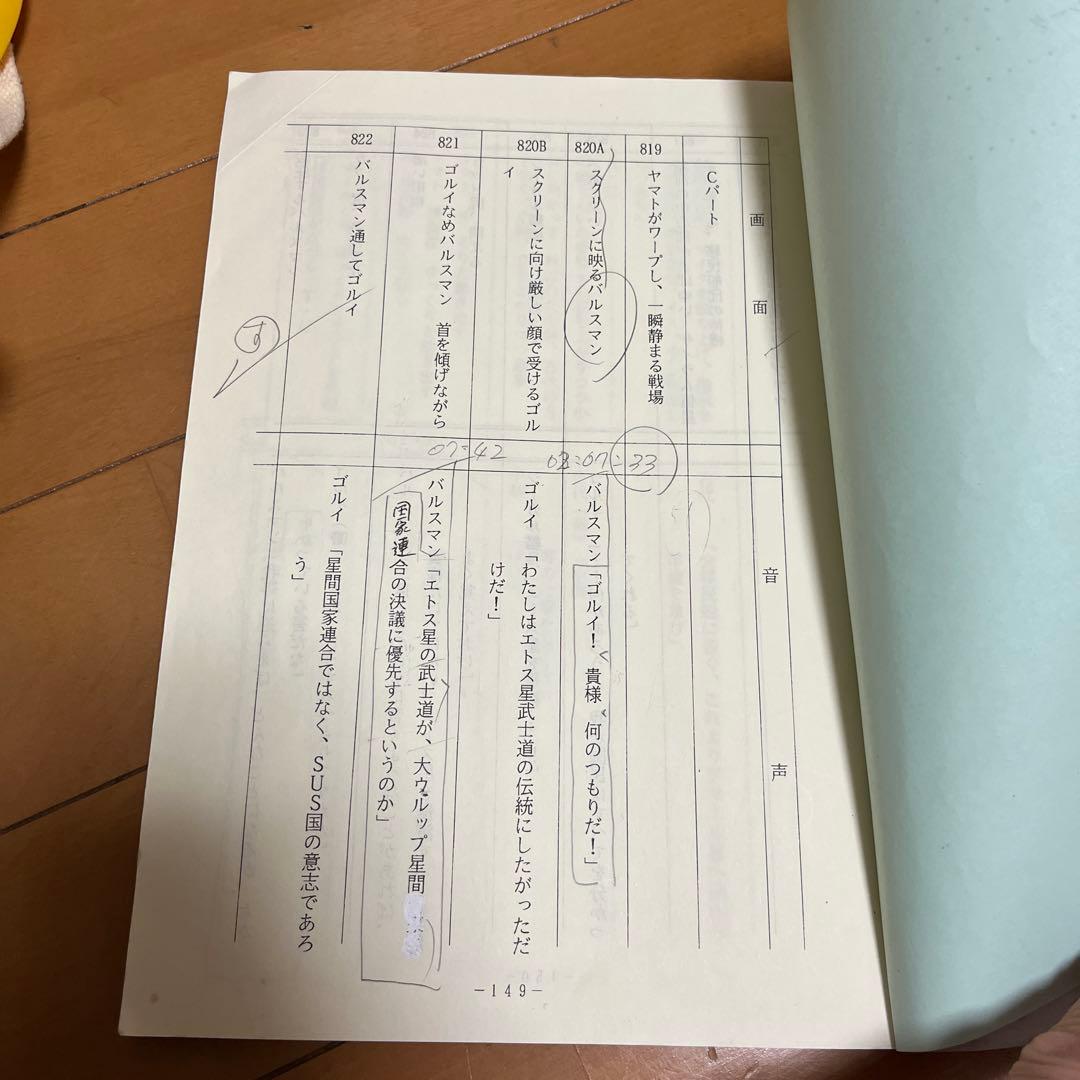 画面
音声
Cパート
819
ヤマトがワープし、一瞬静まる戦場
33
820A
スクリーンに映るバルスマン
07:
バルスマン「ゴルイ！ 貴様 何のつもりだ！」
820B
スクリーンに向け厳しい顔で受けるゴル
イ
ゴルイ「わたしはエトス星武士道の伝統にしたがっただ
けだ！」
821
ゴルイなめバルスマン 首を傾げながら
07:42
バルスマン「エトス星の武士道が、大ウルップ星間
国家連合の決議に優先するというのか」
822
バルスマン通してゴルイ
す
ゴルイ「星間国家連合ではなく、SUS国の意志であろ
う」
-149-